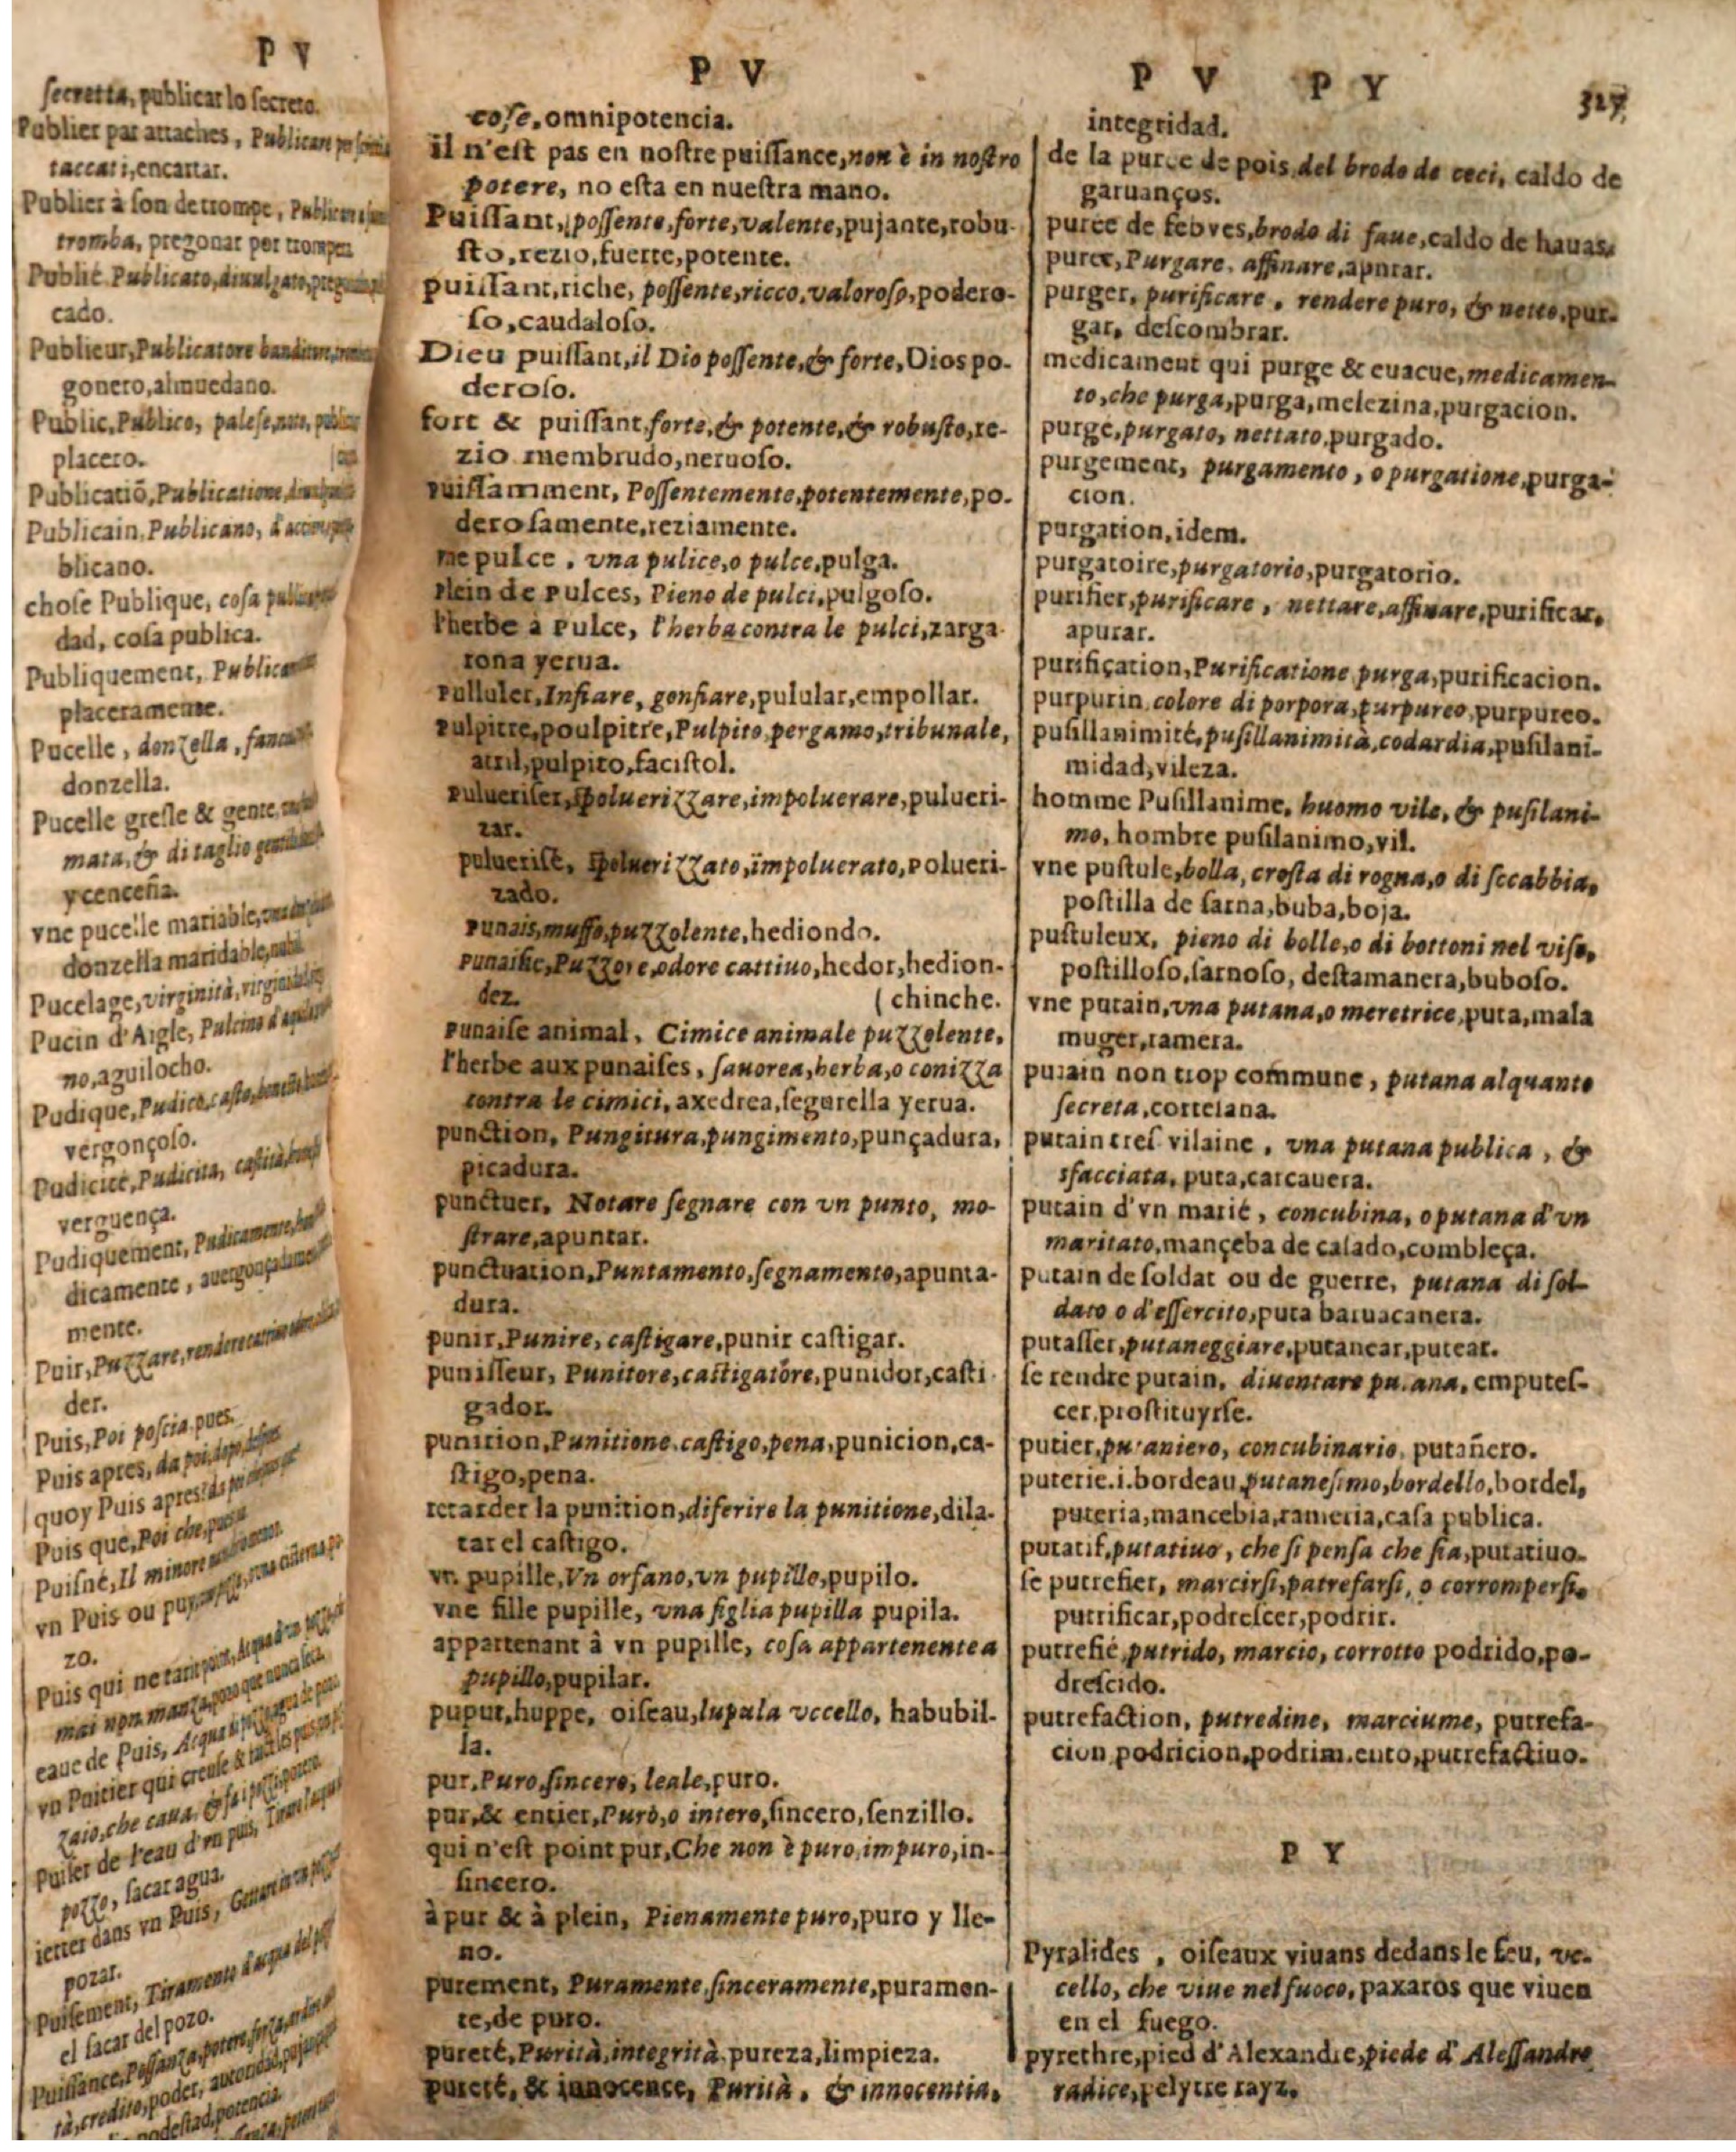 P V
secretta, publicar lo secreto.
Publier par attaches, Publicare per
taccati, encartar.
Publier à son de trompe, Publicare
tromba, pregonar por trompeta
Publié Publicato, diuulgato,
cado.
Publieur, Publicatore
gonero, almuedano.
Public, Publico, palese,
placero.
Publicatiō, Publicatione,
Publicain, Publicano,
blicano.
chose Publique, cosa
dad, cosa publica.
Publiquement,
placeramente.
Pucelle, donzella,
donzella.
Pucelle gresle & gente,
mata, & di taglio
y cenceña.
vne pucelle mariable,
donzella maridable,
Pucelage, virginità,
Pucin d'Aigle, Pulcino
no, aguilocho.
Pudique, Pudico, casto,
vergonçoso.
Pudicité, Pudicita, castità,
verguença.
Pudiquement, Pudicamente,
dicamente, auergonçadamente
mente.
Puir, Puzzare, rendere
der.
Puis, Poi poscia pues.
Puis apres, da poi, dopo,
quoy Puis apres?
Puis que, Poi che,
Puisné, Il minore
vn Puis ou puy,
zo.
Puis qui ne tarit point,
mai non manza, pozo que nunca seca.
eaue de Puis, Acqua
vn Puitier qui creuse &
zaio, che caua, & fa i pozzi,
Puiser de l'eau d'vn puis,
pozzo, sacar agua.
ietter dans vn Puis,
pozar.
Puisement, Tiramento d'acqua del
el sacar del pozo.
Puissance, Possanza, potere, forza,
tà, credito, poder,
potencia.
P V
cose, omnipotencia.
il n'est pas en nostre puissance, non è in nostro
potere, no esta en nuestra mano.
Puissant, possente, forte, valente, pujante, robu-
sto, rezio, fuerte, potente.
puissant, riche, possente, ricco, valoroso, podero-
so, caudaloso.
Dieu puissant, il Dio possente, & forte, Dios po-
deroso.
fort & puissant, forte, & potente, & robusto, re-
zio membrudo, neruoso.
puissamment, Possentemente, potentemente, po-
derosamente, reziamente.
ne pulce, vna pulice, o pulce, pulga.
Plein de Pulces, Pieno de pulci, pulgoso.
l'herbe à Pulce, l'herba contra le pulci, zarga-
tona yerua.
Pulluler, Infiare, gonfiare, pulular, empollar.
Pulpitre, poulpitre, Pulpito pergamo, tribunale,
atril, pulpito, facistol.
Pulueriser, spoluerizzare, impoluerare, pulueri-
zar.
puluerisé, spoluerizzato, impoluerato, polueri-
zado.
Punais, muffo, puzzolente, hediondo.
Punaisie, Puzzore, odore cattiuo, hedor, hedion-
dez. (chinche.
Punaise animal, Cimice animale puzzolente,
l'herbe aux punaises, sauorea, herba, o conizza
contra le cimici, axedrea, segurella yerua.
punction, Pungitura, pungimento, punçadura,
picadura.
punctuer, Notare segnare con vn punto, mo-
strare, apuntar.
punctuation, Puntamento, segnamento, apunta-
dura.
punir, Punire, castigare, punir castigar.
punisseur, Punitore, castigatóre, punidor, casti-
gador.
punition, Punitione, castigo, pena, punicion, ca-
stigo, pena.
retarder la punition, diferire la punitione, dila-
tar el castigo.
vn pupille, Vn orfano, vn pupillo, pupilo.
vne fille pupille, vna figlia pupilla pupila.
appartenant à vn pupille, cosa appartenente a
pupillo, pupilar.
puput, huppe, oiseau, lupula vccello, habubil-
la.
pur, Puro, sincero, leale, puro.
pur, & entier, Puro, o intero, sincero, senzillo.
qui n'est point pur, Che non è puro, impuro, in-
sincero.
à pur & à plein, Pienamente puro, puro y lle-
no.
purement, Puramente, sinceramente, puramen-
te, de puro.
pureté, Purità, integrità, pureza, limpieza.
pureté, & innocence, Purità, & innocentia,
P V P Y 327
integridad.
de la puree de pois, del brodo de ceci, caldo de
garuanços.
puree de febves, brodo di faue, caldo de hauas.
purer, Purgare, affinare, apurar.
purger, purificare, rendere puro, & netto, pur-
gar, descombrar.
medicament qui purge & euacue, medicamen-
to, che purga, purga, melezina, purgacion.
purgé, purgato, nettato, purgado.
purgement, purgamento, o purgatione, purga-
cion.
purgation, idem.
purgatoire, purgatorio, purgatorio.
purifier, purificare, nettare, affinare, purificar,
apurar.
purifiçation, Purificatione purga, purificacion.
purpurin, colore di porpora, purpureo, purpureo.
pusillanimité, pusillanimità, codardia, pusilani-
midad, vileza.
homme Pusillanime, huomo vile, & pusilani-
mo, hombre pusilanimo, vil.
vne pustule, bolla, crosta di rogna, o di sccabbia,
postilla de sarna, buba, boja.
pustuleux, pieno di bolle, o di bottoni nel viso,
postilloso, sarnoso, destamanera, buboso.
vne putain, vna putana, o meretrice, puta, mala
muger, ramera.
putain non trop commune, putana alquanto
secreta, cortesana.
putain tres vilaine, vna putana publica, &
sfacciata, puta, carcauera.
putain d'vn marié, concubina, o putana d'vn
maritato, mançeba de casado, combleça.
putain de soldat ou de guerre, putana di sol-
dato o d'essercito, puta baruacanera.
putasser, putaneggiare, putanear, putear.
se rendre putain, diuentare putana, emputes-
cer, prostituyrse.
putier, putaniero, concubinario, putañero.
puterie.i.bordeau, putanesimo, bordello, bordel,
puteria, mancebia, rameria, casa publica.
putatif, putatiuo, che si pensa che sia, putatiuo.
se putrefier, marcirsi, patrefarsi, o corrompersi,
putrificar, podrescer, podrir.
putrefié, putrido, marcio, corrotto podrido, po-
drescido.
putrefaction, putredine, marciume, putrefa-
cion podricion, podrimiento, putrefactiuo.
P Y
Pyralides, oiseaux viuans dedans le feu, vc-
cello, che viue nel fuoco, paxaros que viuen
en el fuego.
pyrethre, pied d'Alexandre, piede d'Alessandro
radice, pelytre rayz.